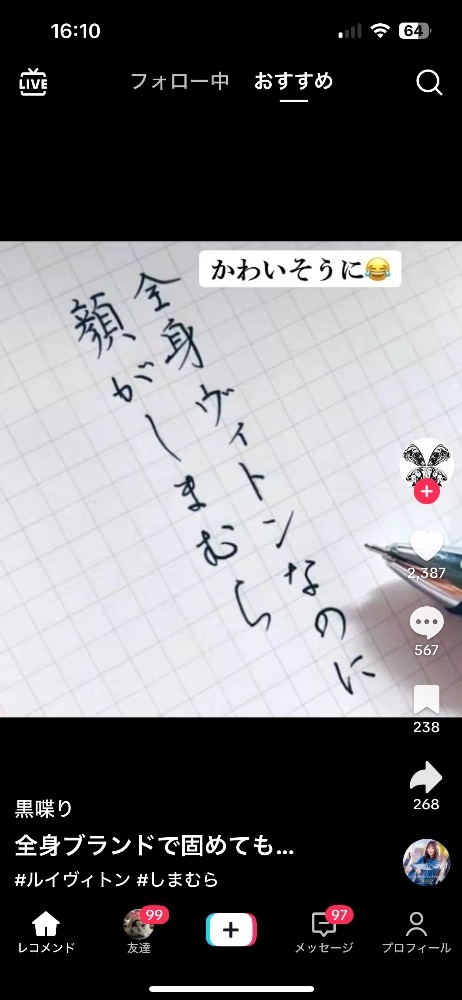 16:10
64
LIVE
フォロー中
おすすめ
かわいそうに😂
全身ヴィトンなのに
顔がしまむら
2,387
567
238
268
黒喋り
全身ブランドで固めても...
#ルイヴィトン #しまむら
99
97
レコメンド
友達
メッセージ
プロフィール